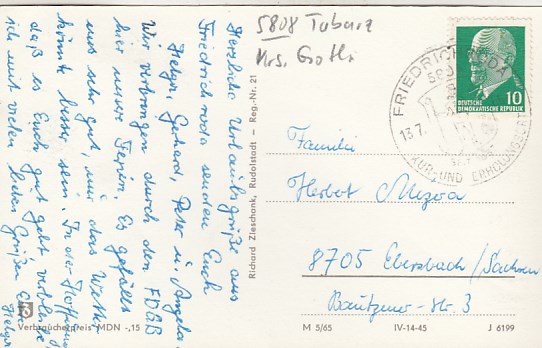 Herzliche Urlaubsgrüße aus
Friedrichroda senden Euch
Helga, Gerhard, Peter u. Angela
Wir verbringen durch den FDGB
hier unsere Ferien. Es gefällt
uns sehr gut, nur das Wetter
könnte besser sein. In der Hoffnung
daß es Euch gut geht verbleibe
ich mit vielen lieben Grüßen
Helga
5808 Tabarz
Krs. Gotha
DEUTSCHE
DEMOKRATISCHE REPUBLIK
10
FRIEDRICHRODA
13.7.
KUR- UND ERHOLUNGSORT
Familie
Herbert
8705 Ebersbach/Sachsen
Bautzner-Str. 3
Richard Zieschank, Rudolstadt — Reg.-Nr. 21
Verbraucherpreis MDN -,15
M 5/65
IV-14-45
J 6199